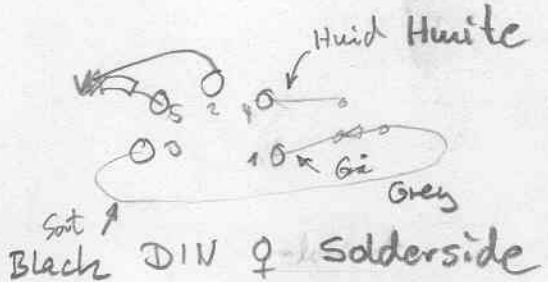 Hvid Hwite
5 2 4
3 1 Grå
Grey
Sort
Black DIN ♀ Solderside